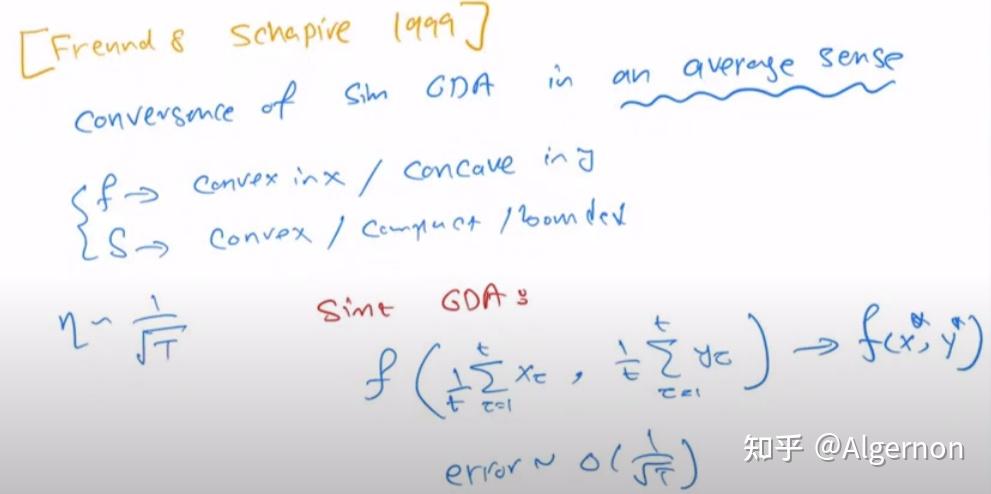 [Freund & Schapire 1999]
Convergence of Sim GDA in an average sense
{ f → convex in x / concave in y
{ S → convex / compact / bounded
η ~ 1/√T
Simt GDA:
f ( 1/t ∑_{τ=1}^{t} x_τ , 1/t ∑_{τ=1}^{t} y_τ ) → f(x*, y*)
error ~ O(1/√T)
知乎 @Algernon